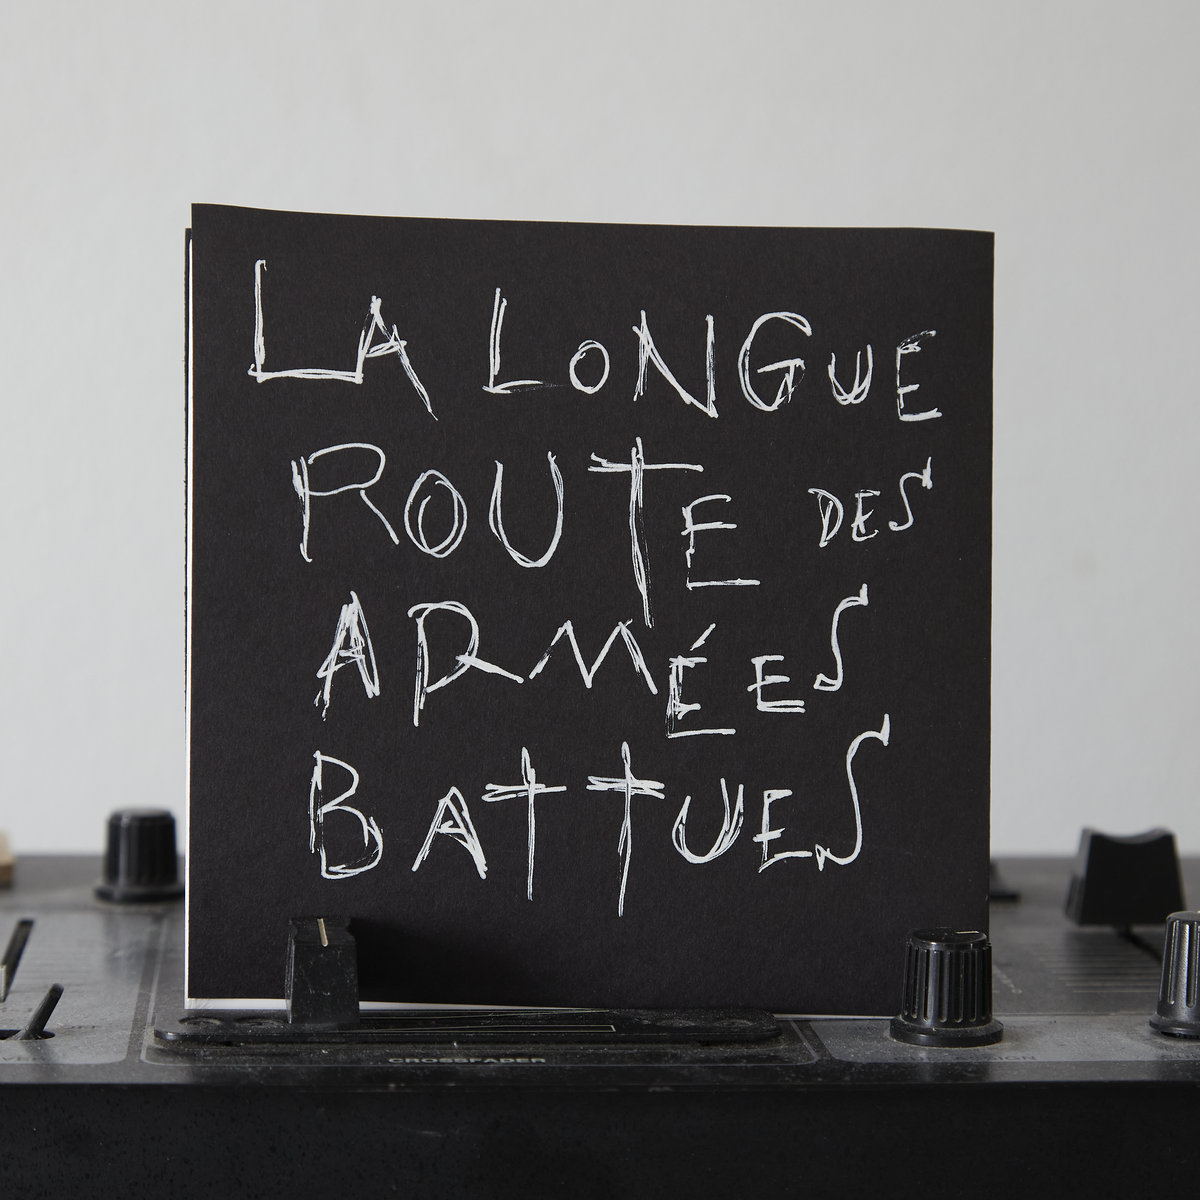 LA LONGUE
ROUTE DES
ARMÉES
BATTUES
CROSSFADER